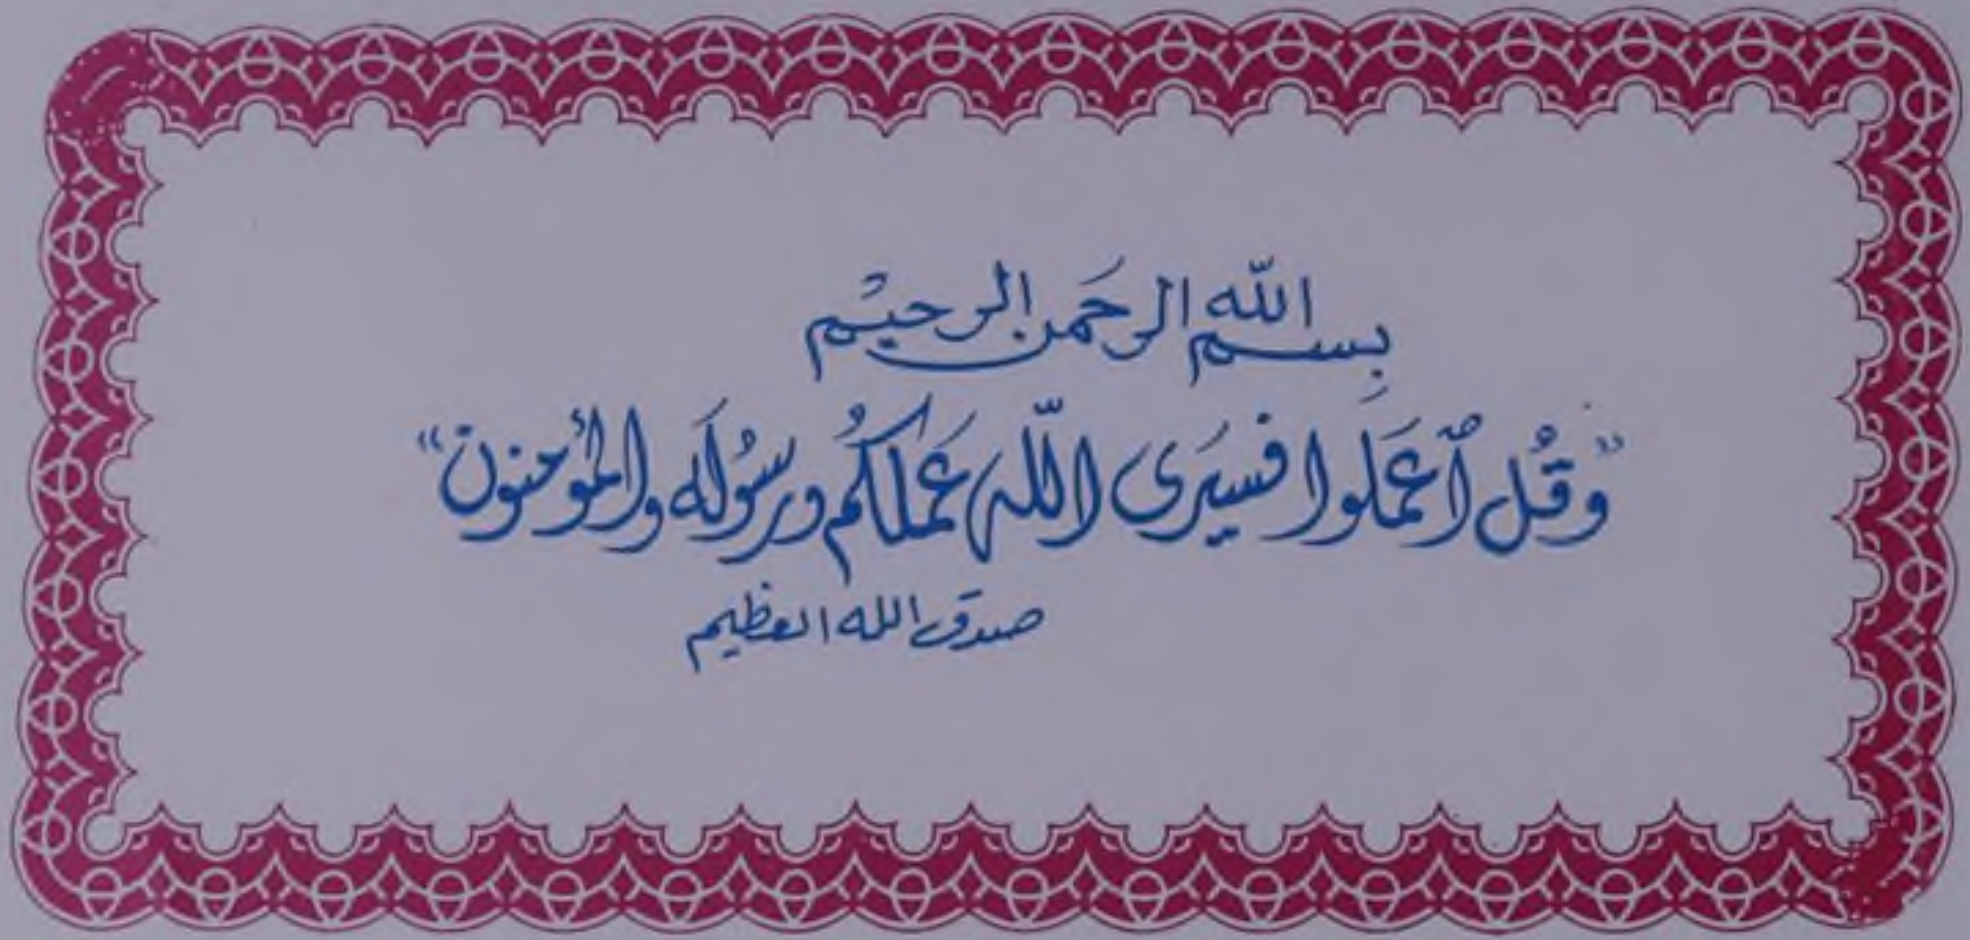 بِسم الله الرحَمن الرحيْم
"وَقُل ٱعمَلوا فسيَرى اللّه عَملكُم ورسُولَه والمؤمنون"
صدق الله العظيم